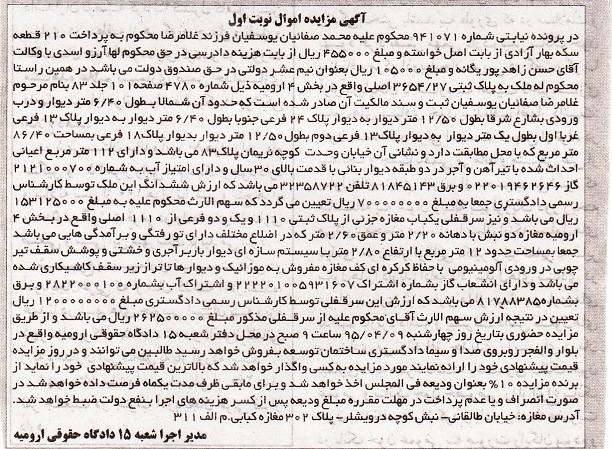 آگهی مزایده اموال نوبت اول
در پرونده نیابتی شماره ۹۴۱۰۷۱ محکوم علیه محمد صفائیان یوسفیان فرزند غلامرضا محکوم به پرداخت ۲۱۰ قطعه
سکه بهار آزادی از بابت اصل خواسته و مبلغ ۴۵۵۰۰۰ ریال از بابت هزینه دادرسی در حق محکوم لها آرزو اسدی با وکالت
آقای حسن زاهد پور یگانه و مبلغ ۱۰۵۰۰۰ ریال بعنوان نیم عشر دولتی در حق صندوق دولت می باشد در همین راستا
محکوم له ملک به پلاک ثبتی ۳۶۵۴/۲۷ اصلی واقع در بخش ۴ ارومیه ذیل شماره ۴۷۸۰ صفحه ۱۰۱ جلد ۸۳ بنام مرحوم
غلامرضا صفائیان یوسفیان ثبت و سند مالکیت آن صادر شده است که حدود آن شمالا بطول ۶/۴۰ متر دیوار و درب
ورودی بشارع شرقا بطول ۱۲/۵۰ متر دیوار به دیوار پلاک ۲۴ فرعی جنوبا بطول ۶/۴۰ متر دیوار به دیوار پلاک ۱۳ فرعی
غربا اول بطول یک متر دیوار به دیوار پلاک ۱۳ فرعی دوم بطول ۱۲/۵۰ متر دیوار بدیوار پلاک ۱۸ فرعی بمساحت ۸۶/۴۰
متر مربع که با محل مطابقت دارد و نشانی آن خیابان وحدت کوچه نریمان پلاک ۸۳ می باشد و دارای ۱۱۲ متر مربع اعیانی
احداث شده با تیر آهن و آجر در دو طبقه دیوار بنائی با قدمت بالای ۳۰ سال و دارای امتیاز آب به شماره ۲۱۲۱۰۰۰۷۰۰
گاز ۰۲۲۰۱۹۴۶۲۶۴۶ و برق ۸۱۸۴۵۱۴۳ تلفن ۳۲۳۵۸۷۲۲ می باشد که ارزش ششدانگ این ملک توسط کارشناس
رسمی دادگستری جمعا به مبلغ ۷۰۰۰۰۰۰۰۰ ریال تعیین می گردد که سهم الارث محکوم علیه به مبلغ ۱۵۳۱۲۵۰۰۰
ریال می باشد و نیز سرقفلی یکباب مغازه جزئی از پلاک ثبتی ۱۱۱۰ و یک و دو فرعی از ۱۱۱۰ اصلی واقع در بخش ۴
ارومیه مغازه دو نبش با دهانه ۲/۲۰ متر و عمق ۲/۶۰ متر که در اضلاع مختلف دارای تو رفتگی و برآمدگی هایی می باشد
جمعا بمساحت حدود ۱۲ متر مربع با ارتفاع ۲/۸۰ متر با سیستم سازه ای دیوار باربر آجری و خشتی و پوشش سقف تیر
چوبی در ورودی آلومینیومی با حفاظ کرکره ای کف مغازه مفروش به موزائیک و دیوار ها تا تراز زیر سقف کاشیکاری شده
می باشد و دارای انشعاب گاز بشماره اشتراک ۲۲۲۲۰۱۰۰۵۹۳۱۶۰۷ و اشتراک آب بشماره ۲۸۲۲۰۰۰۱۰۰ و برق
بشماره ۸۱۷۸۸۳۸۵ می باشد که ارزش این سرقفلی توسط کارشناس رسمی دادگستری مبلغ ۱۲۰۰۰۰۰۰۰۰ ریال
تعیین در نتیجه ارزش سهم الارث آقای محکوم علیه از سرقفلی مذکور مبلغ ۲۶۲۵۰۰۰۰۰ ریال می باشد و از طریق
مزایده حضوری بتاریخ روز چهارشنبه ۹۵/۰۴/۰۹ ساعت ۹ صبح در محل دفتر شعبه ۱۵ دادگاه حقوقی ارومیه واقع در
بلوار والفجر روبروی صدا و سیما دادگستری ساختمان توسعه بفروش خواهد رسید طالبین می توانند و در روز مزایده
قیمت پیشنهادی خود را ارائه نمایند مورد مزایده به کسی واگذار خواهد شد که بالاترین قیمت پیشنهادی خود را نماید از
برنده مزایده ۱۰% بعنوان ودیعه فی المجلس اخذ خواهد شد و برای مابقی ظرف مدت یکماه فرصت داده خواهد شد در
صورت انصراف و یا عدم پرداخت در مهلت مقرره مبلغ ودیعه پس از کسر هزینه های اجرا بنفع دولت ضبط خواهد شد.
آدرس مغازه: خیابان طالقانی- نبش کوچه درویشلر- پلاک ۳۰۲ مغازه کبابی. م الف ۳۱۱
مدیر اجرا شعبه ۱۵ دادگاه حقوقی ارومیه